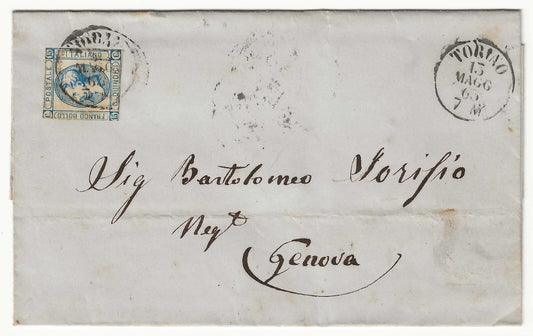 POSTALE
ITALIANO
FRANCO BOLLO
TORINO
13
MAGG
63
7 M
Sig Bartolomeo Torisio
Negt
Genova